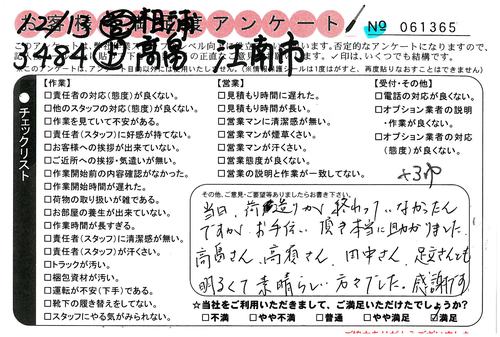 12/13
3484 高畠 江南市
お客様満足度アンケート
№ 061365
このアンケートは
✓印は、いくつでも結構です。
※このアンケートは、アンケート自体以外には使用いたしません。(※情報保護シールは1度はがすと、再度貼りなおすことはできません)
チェックリスト
【作業】
□責任者の対応(態度)が良くない。
□他のスタッフの対応(態度)が良くない。
□作業を見ていて不安がある。
□責任者(スタッフ)に好感が持てない。
□お客様への挨拶が出来ていない。
□ご近所への挨拶・気遣いが無い。
□作業開始前の内容確認がなかった。
□作業開始時間が遅れた。
□荷物の取り扱いが雑である。
□お部屋の養生が出来ていない。
□作業時間が長すぎる。
□責任者(スタッフ)に清潔感が無い。
□責任者(スタッフ)が汗くさい。
□トラックが汚い。
□梱包資材が汚い。
□運転が不安(下手)である。
□靴下の履き替えをしてない。
□スタッフにやる気がみられない。
【営業】
□見積もり時間に遅れた。
□見積もり時間が長い。
□営業マンに清潔感が無い。
□営業マンが煙草くさい。
□営業マンが汗くさい。
□営業態度が良くない。
□営業の説明と作業が一致してない。
【受付・その他】
□電話の対応が良くない。
□オプション業者の説明
・作業が良くない。
□オプション業者の対応
(態度)が良くない。
その他、ご意見・ご要望等ありましたらお書き下さい。
当日、荷造りが終わっていなかったん
ですが、お手伝い頂き本当に助かりました。
高畠さん、高須さん、田中さん、足立さんとも
明るくて素晴らしい方々でした。感謝です
☆当社をご利用いただきまして、ご満足いただけたでしょうか?
□不満 □やや不満 □普通 □やや満足 ☑満足